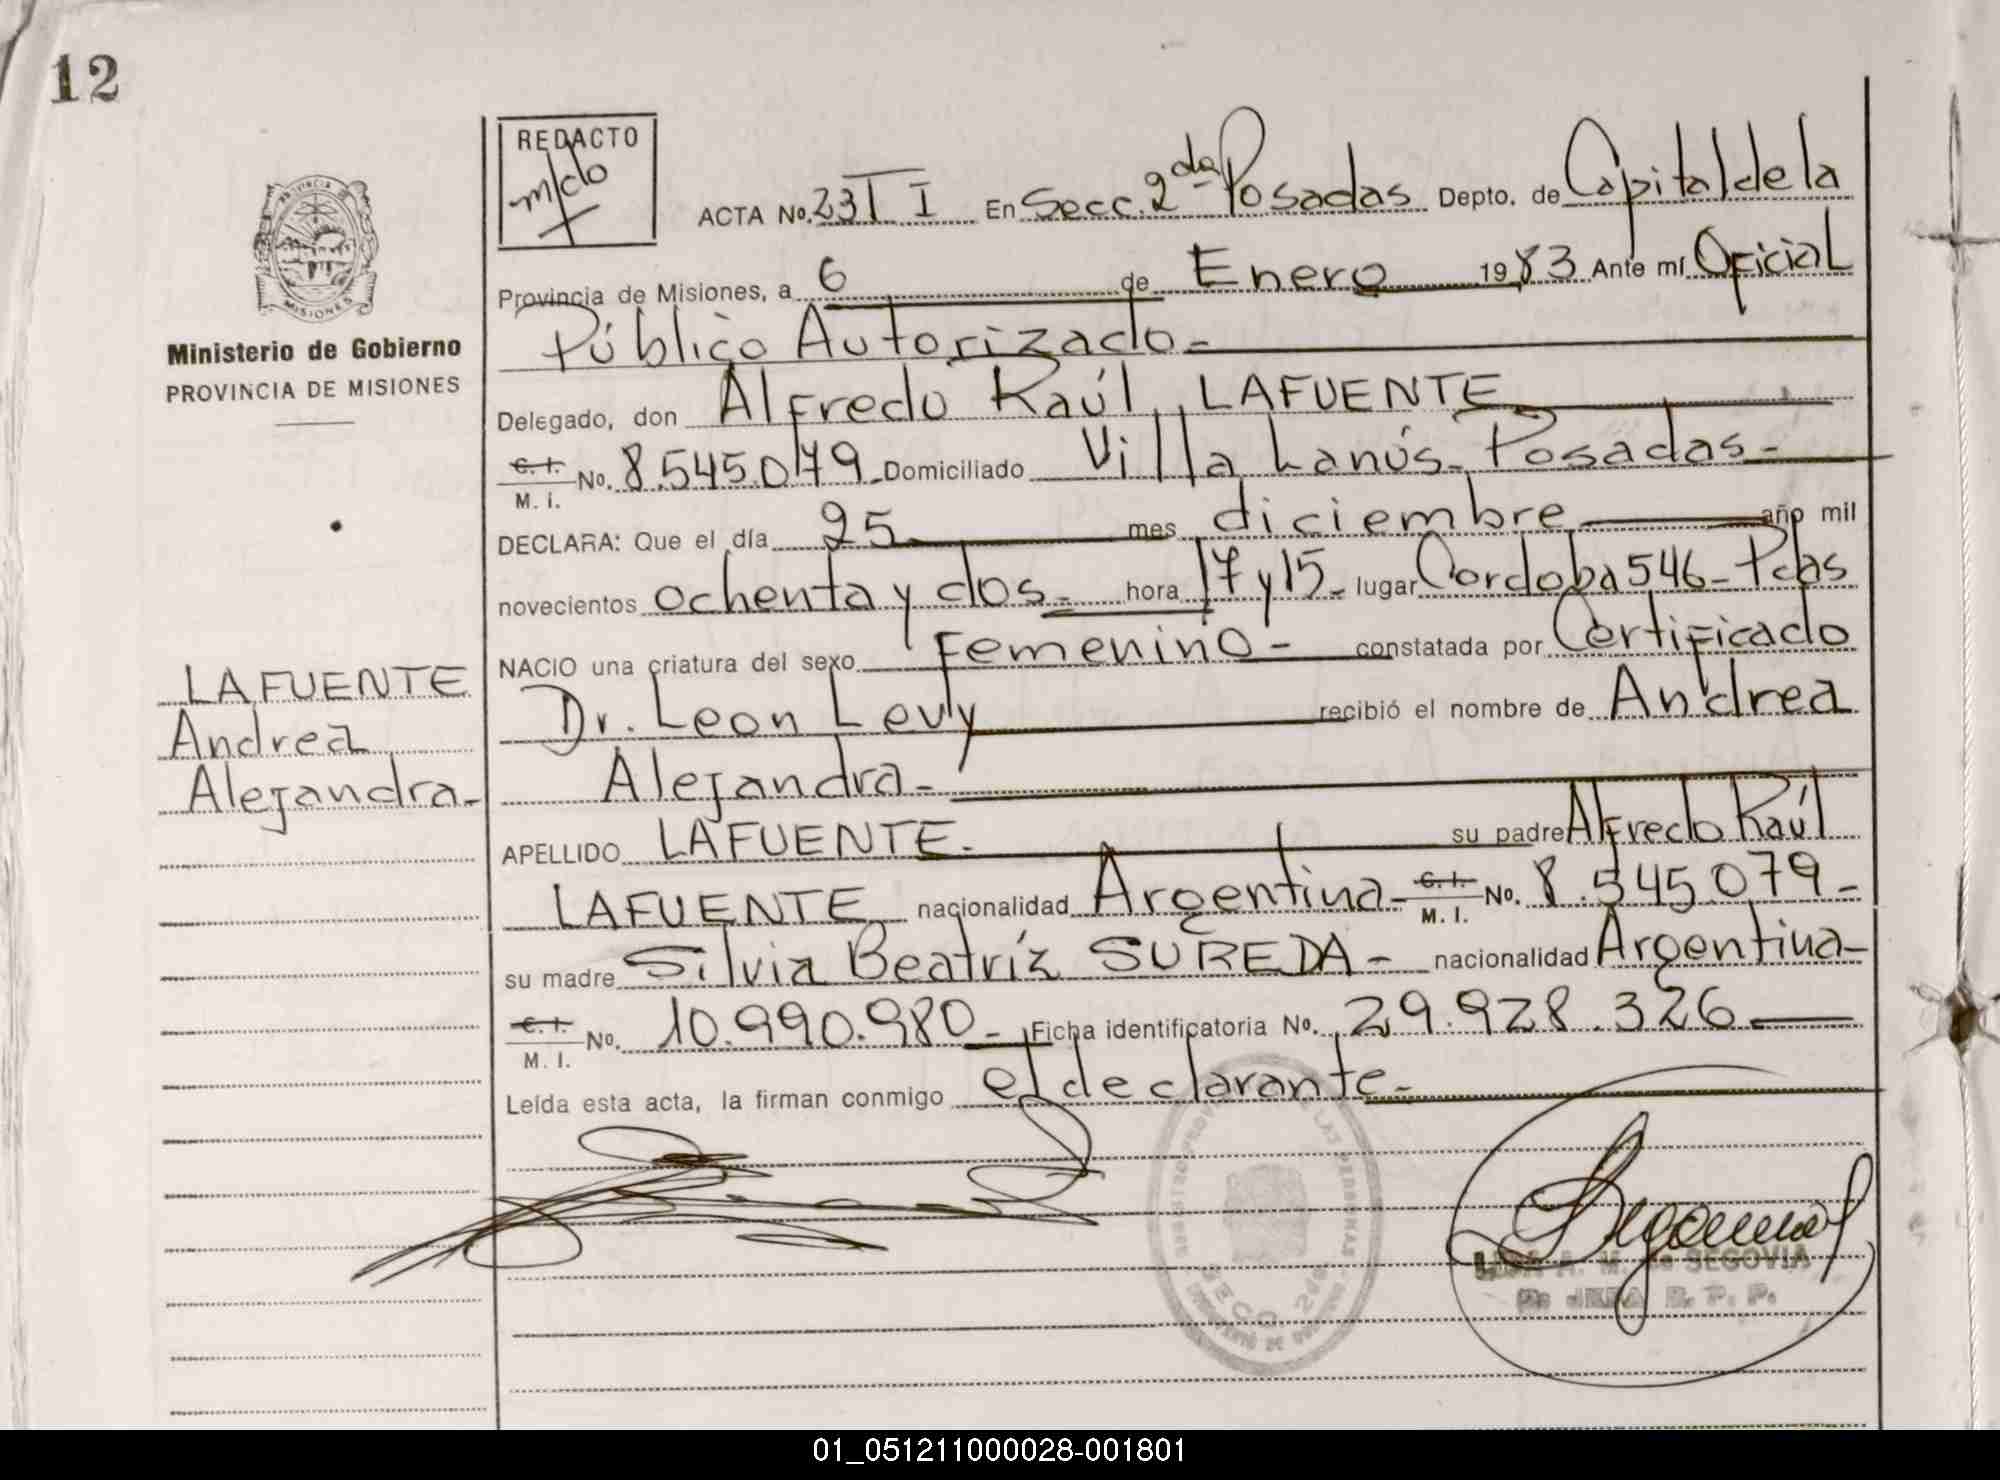 12
REDACTO
m/clo
PROVINCIA DE
MISIONES
Ministerio de Gobierno
PROVINCIA DE MISIONES
ACTA No. 23 T I En Secc. 2da Posadas Depto. de Capital de la
Provincia de Misiones, a 6 de Enero 1983 Ante mí Oficial
Público Autorizado -
Delegado, don Alfredo Raúl LAFUENTE
C. I. / M. I. No. 8.545.079 - Domiciliado Villa Lanús - Posadas -
DECLARA: Que el día 25 mes diciembre año mil
novecientos ochenta y dos - hora 17 y 15 - lugar Cordoba 546 - Pdas
NACIO una criatura del sexo Femenino - constatada por Certificado
Dr. Leon Levy recibió el nombre de Andrea
Alejandra -
LAFUENTE
Andrea
Alejandra -
APELLIDO LAFUENTE - su padre Alfredo Raúl
LAFUENTE nacionalidad Argentina - C. I. / M. I. No. 8.545.079 -
su madre Silvia Beatríz SUREDA - nacionalidad Argentina -
C. I. / M. I. No. 10.990.980 - Ficha identificatoria No. 29.928.326
Leída esta acta, la firman conmigo el declarante -
SECC. 2da
A. M. de SEGOVIA
JEFA R. P. P.
01_051211000028-001801